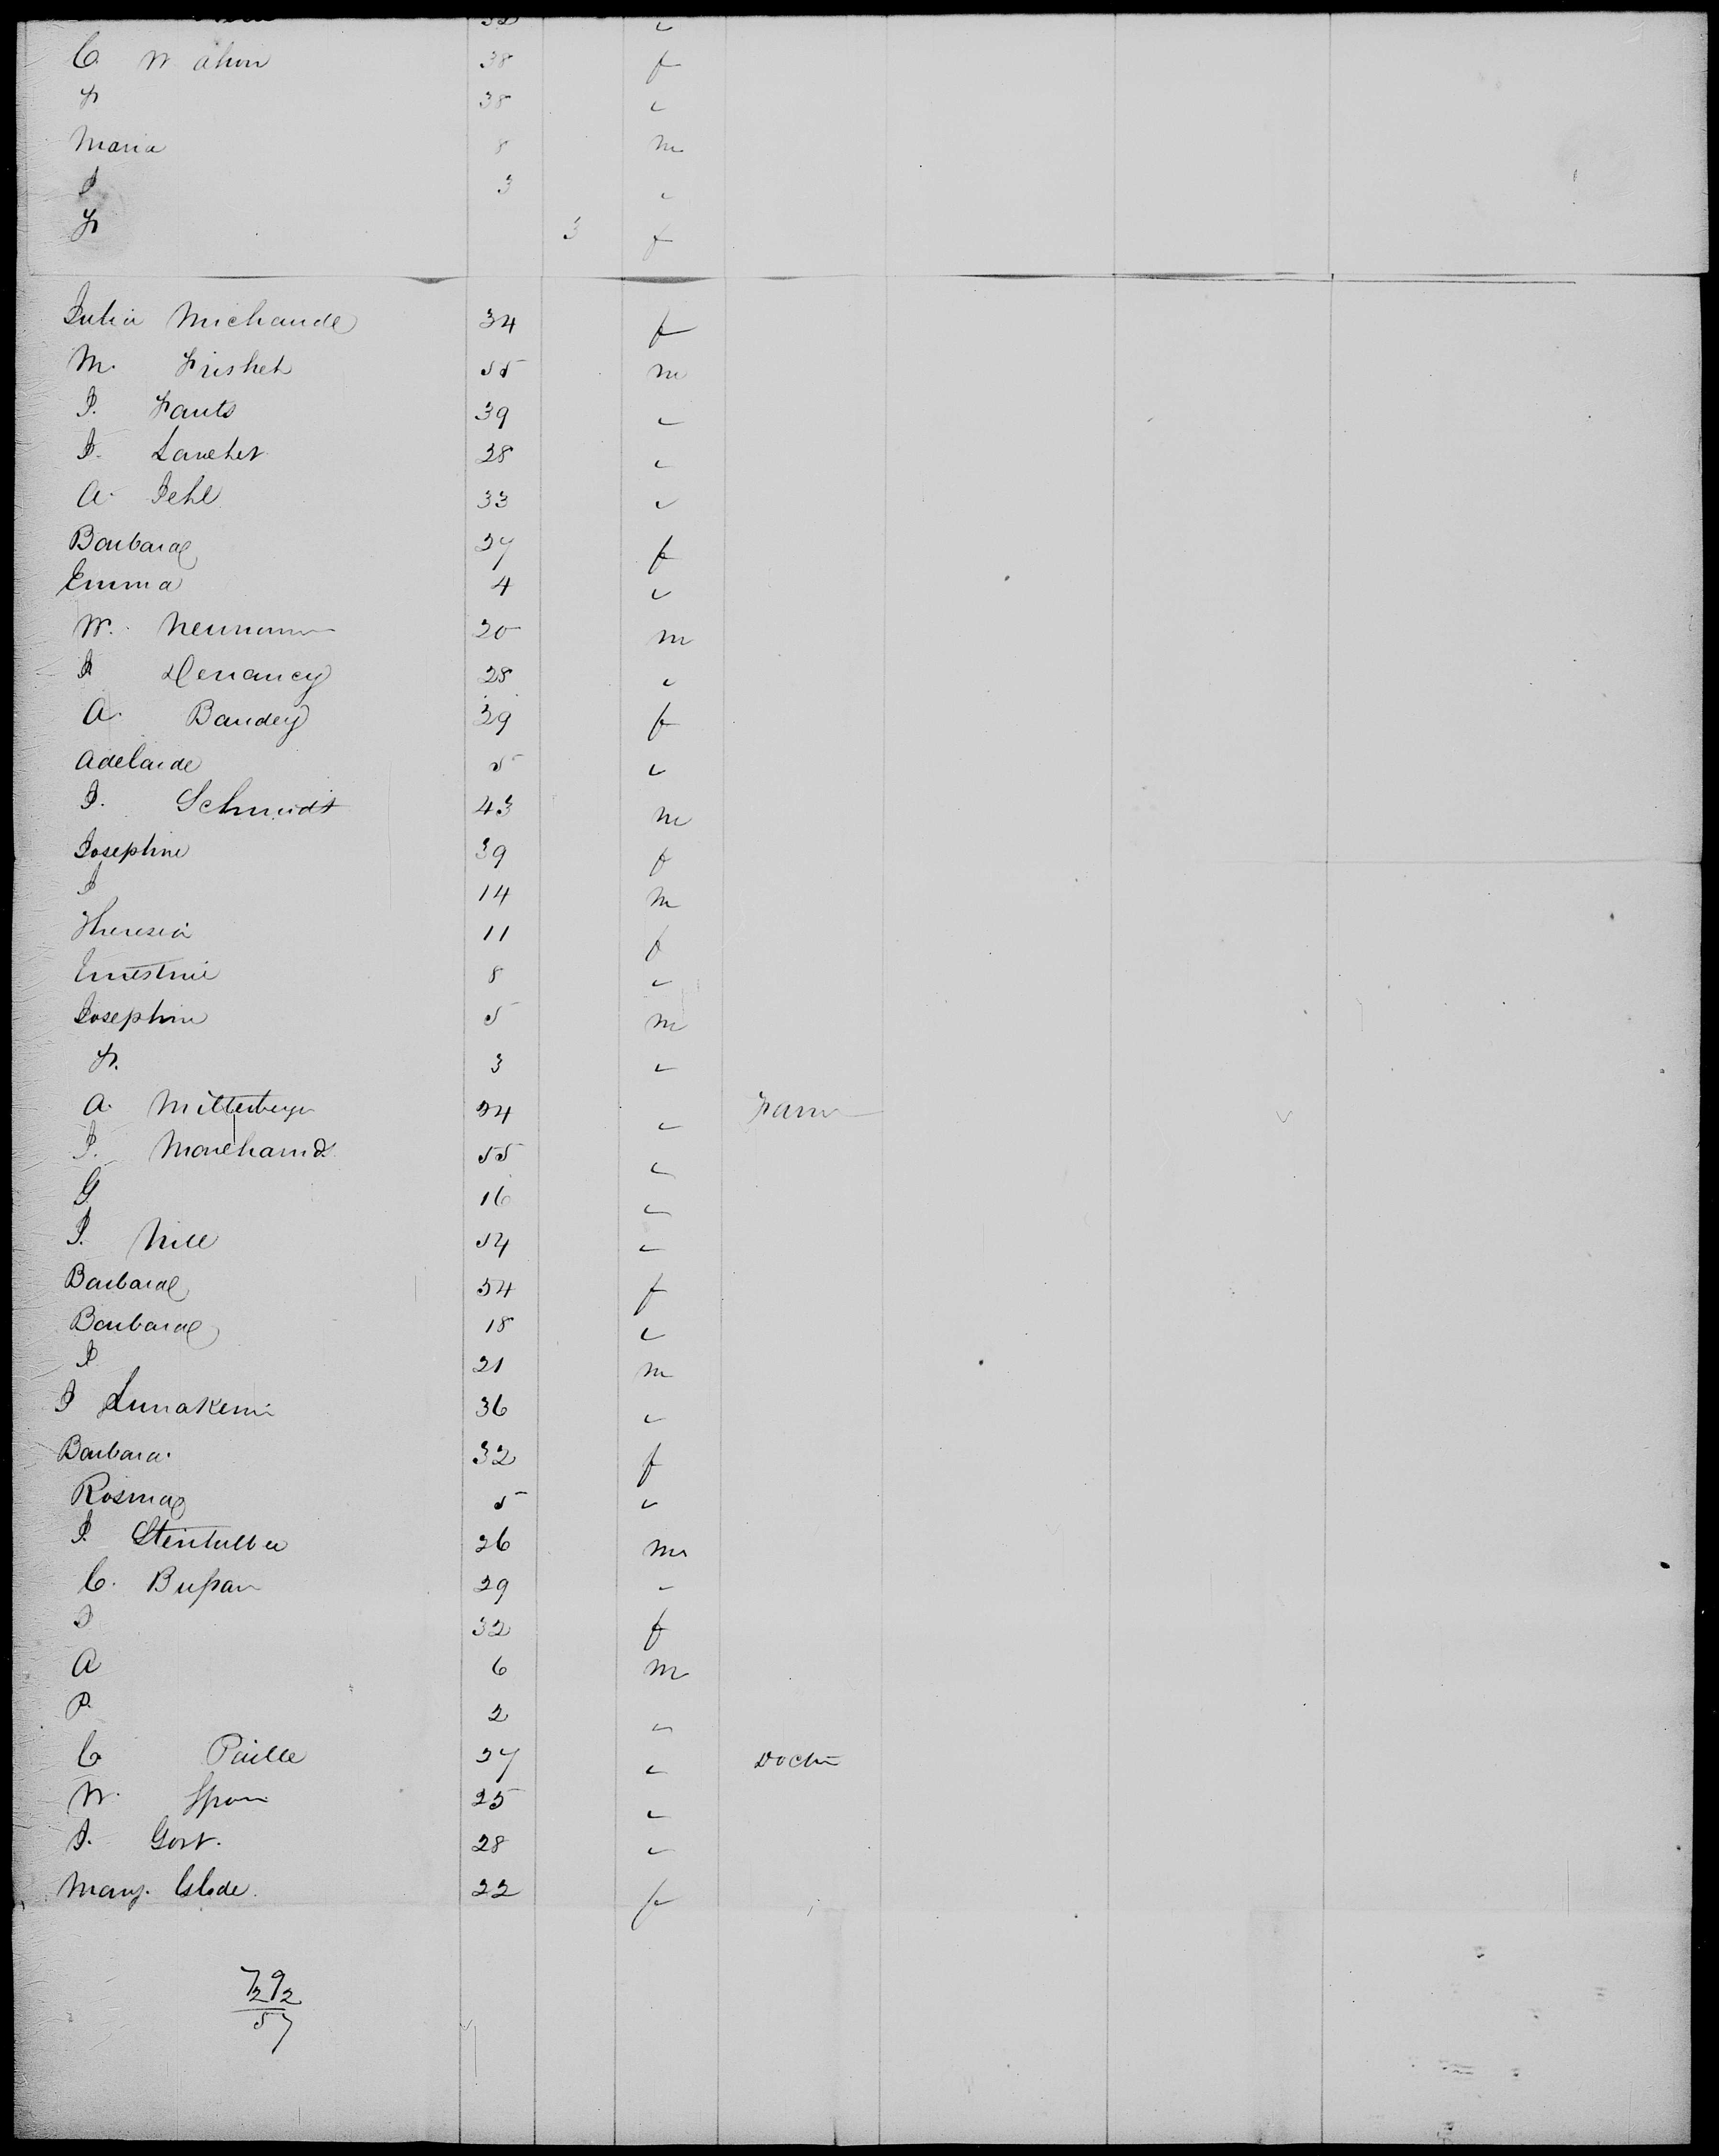 C. W ahin 38 f
F 38 "
Maria 8 m
J 3 "
F 3 f
Julia Michaude 34 f
M. Frisket 55 m
J. Fants 39 "
J. 28 "
A. Jehl 33 "
Barbara 27 f
Emma 4 "
W. Neumann 20 m
J Denancy 28 "
A. Baudey 29 f
Adelaide 5 "
J. Schmidt 43 m
Josephine 39 f
J 14 m
Theresia 11 f
Ernestine 8 "
Josephine 5 m
F. 3 "
A. Mitterberger 24 " Farm
J. Morehand 55 "
G. 16 "
J. Nill 54 "
Barbara 54 f
Barbara 18 "
J 21 m
J 36 "
Barbara. 32 f
Rosina 5 "
J. 26 m
C. Bussan 29 "
J 32 f
A 6 m
P. 2 "
C Paille 27 " Doctr
W. Spon 25 "
J. Gort. 28 "
Mary. Clode. 22 f
292
57